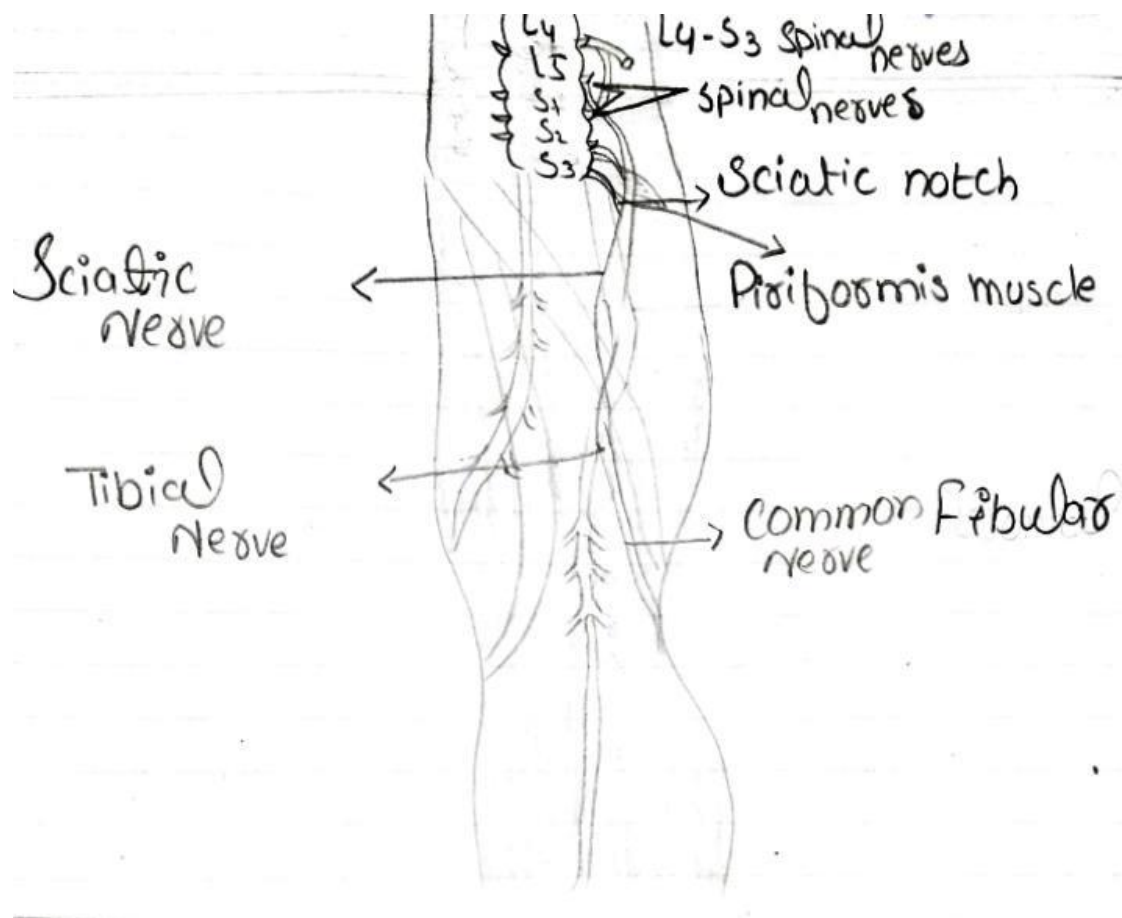 L4
L5
S1
S2
S3
L4-S3 spinal
nerves
spinal nerves
Sciatic notch
Piriformis muscle
Sciatic
Nerve
Tibial
Nerve
Common Fibular
nerve